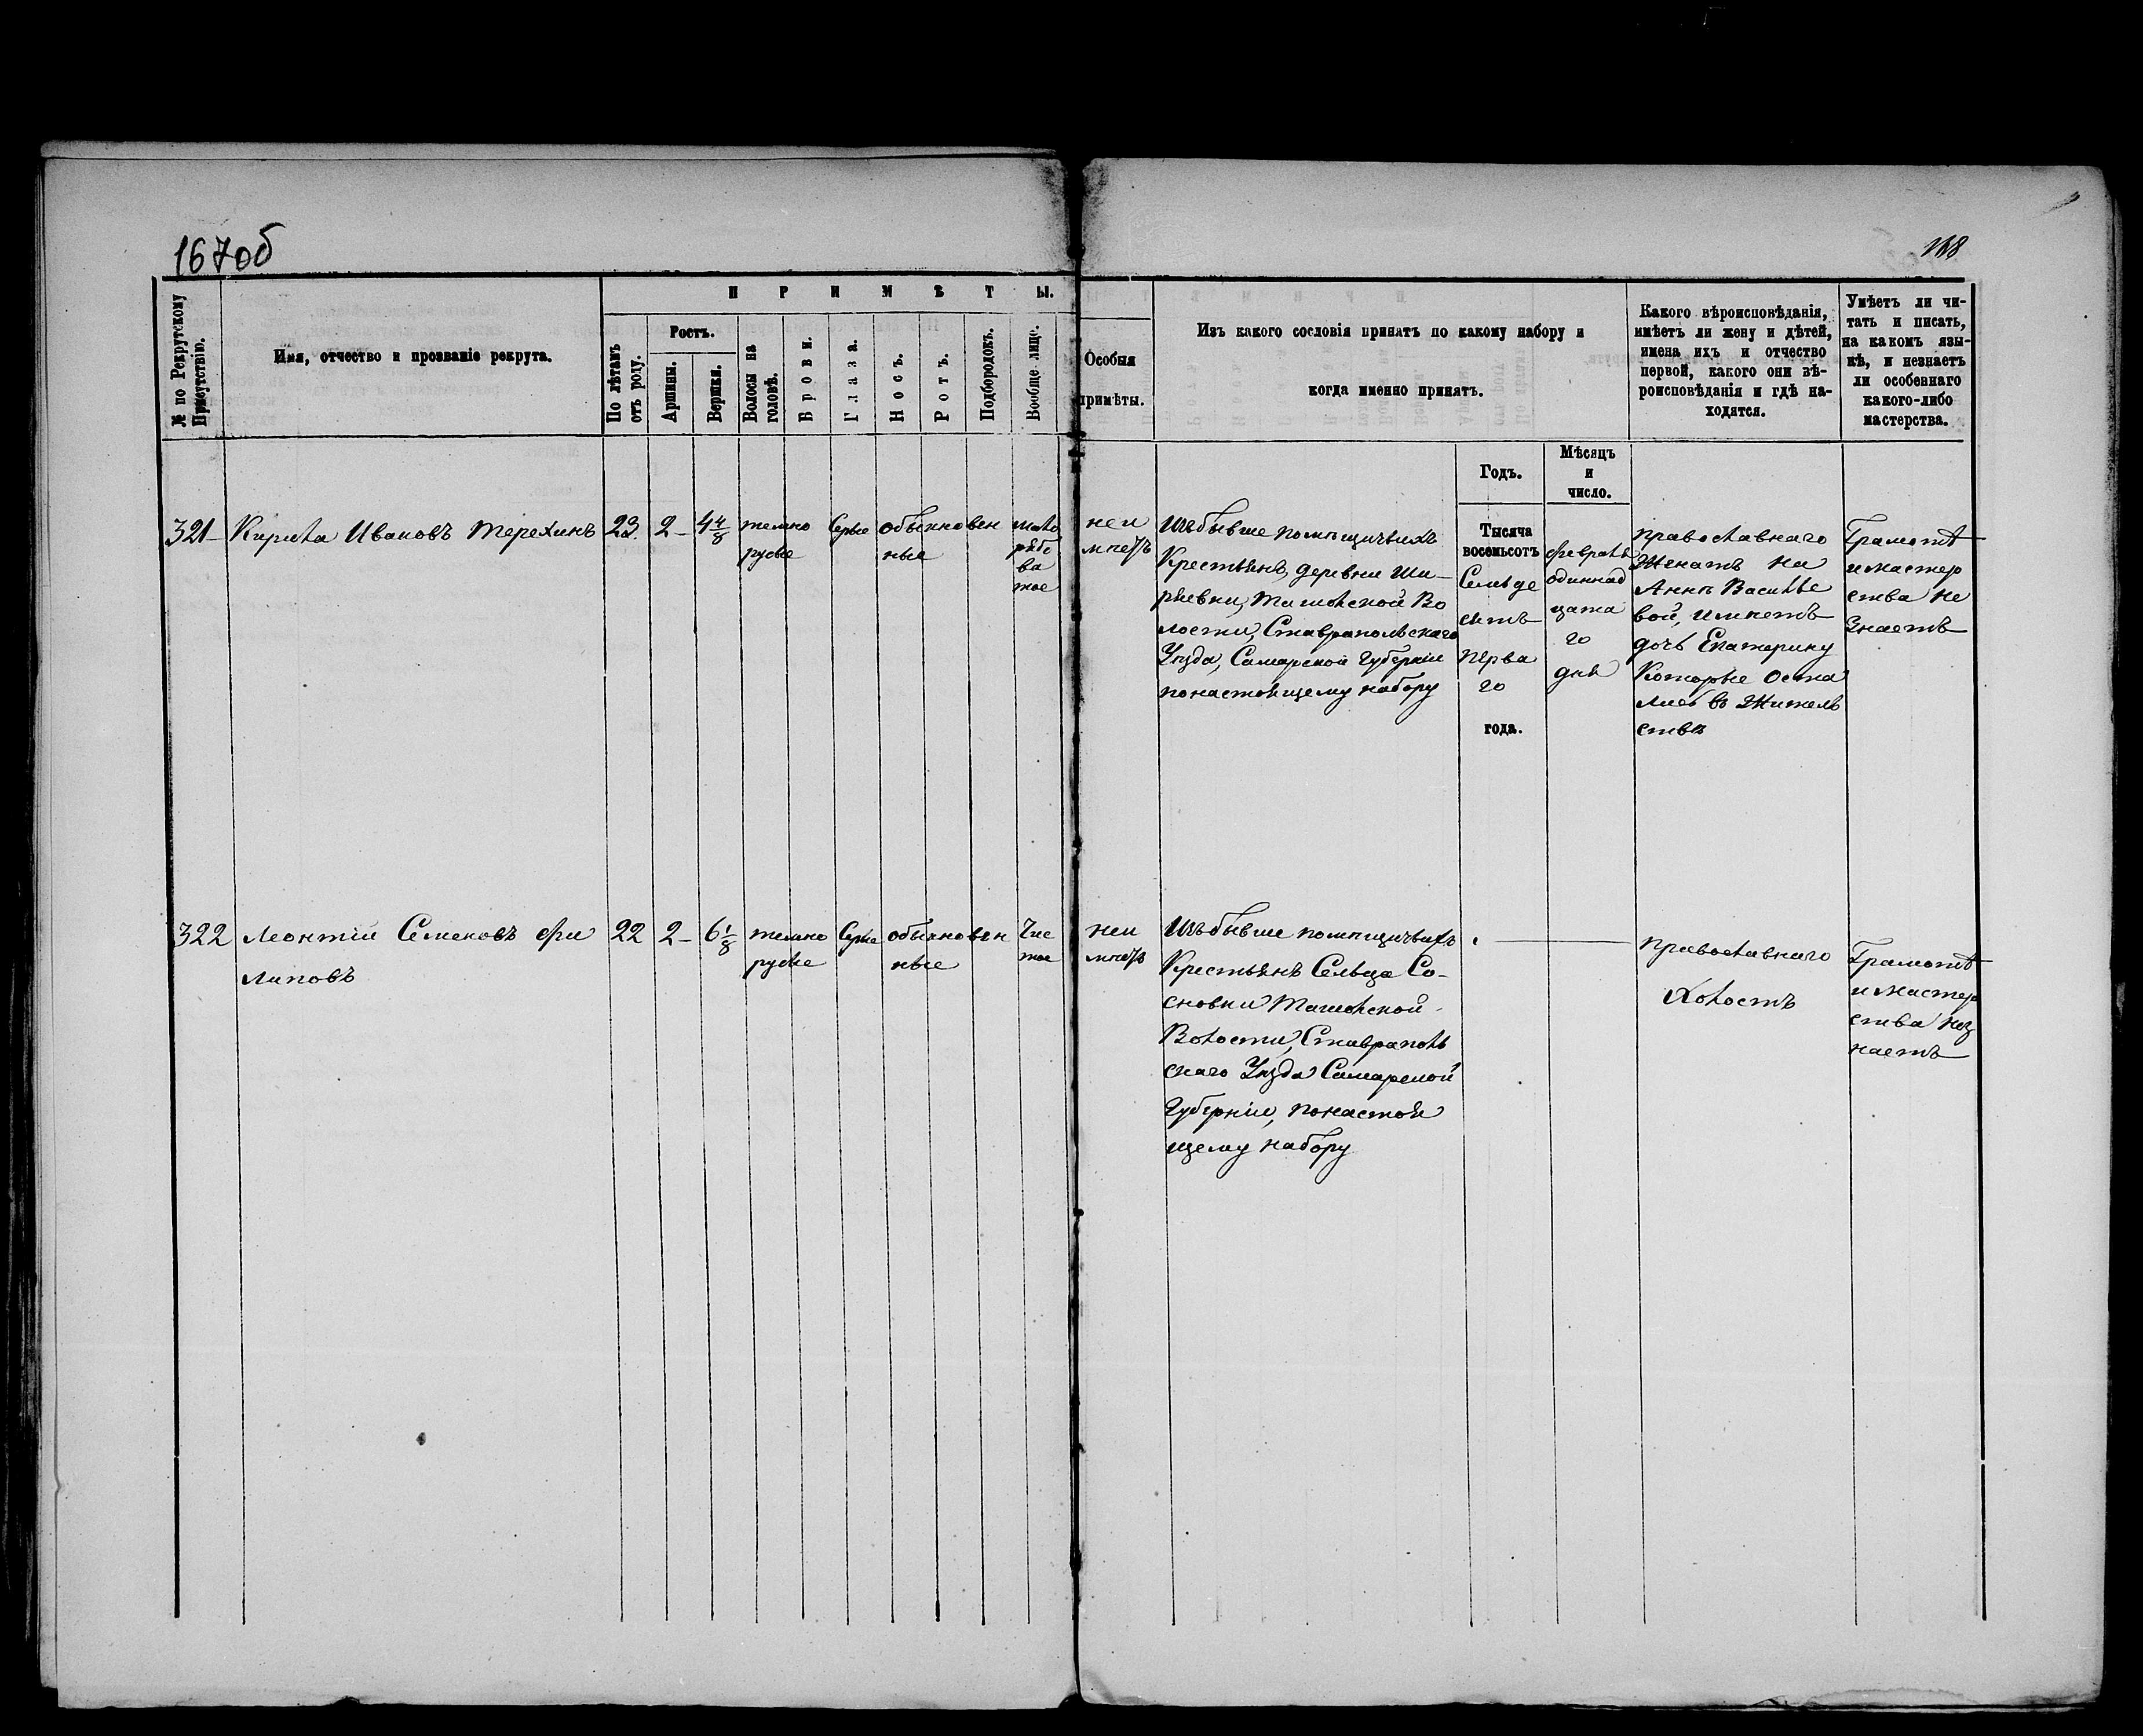 167об
168
№ по Рекрутскому
Присутствію.
Имя, отчество и прозваніе рекрута.
ПРИМѢТЫ.
По лѣтамъ
отъ роду.
Ростъ.
Аршины.
Вершки.
Волосы на
головѣ.
Брови.
Глаза.
Носъ.
Ротъ.
Подбородокъ.
Вообще лице.
Особыя
примѣты.
Изъ какого сословія принятъ по какому набору и
когда именно принятъ.
Какого вѣроисповѣданія,
имѣетъ ли жену и дѣтей,
имена ихъ и отчество
первой, какого они вѣ-
роисповѣданія и гдѣ на-
ходятся.
Умѣетъ ли чи-
тать и писать,
на какомъ язы-
кѣ, и незнаетъ
ли особеннаго
какого-либо
мастерства.
Годъ.
Мѣсяцъ
и
число.
321
Кирила Ивановъ Терехинъ
23
2
4 4/8
темно
русые
Серые
обыкновен
ные
мало
рябо
ва
тое
неи
мпетъ
Изъ бывше помпщичьихъ
Крестьянъ, деревни Ши-
ряевки, Ташолской Во
лости, Ставропольскаго
Упзда, Самарской Губерніи
по настоящему набору
Тысяча
восемьсотъ
Семьде
сятъ
перва
го
года.
февраля
одиннад
цата
го
дня
православнаго
Женатъ на
Аннп Василье
вой, импетъ
дочь Екатерину
Которые оста
лись въ Жжитель
ствп
Грамотѣ
и мастер
ства не
знаетъ
322
Леонтій Семеновъ Фи
липовъ
22
2
6 1/8
темно
русые
Серые
обыкновен
ные
Чис
тое
неи
мпетъ
Изъ бывше помпщичьихъ
Крестьянъ Сельца Со-
сновки Ташолской
Волости, Ставрополь
скаго Упзда Самарской
Губерніи, по настоя
щему набору
православнаго
Холостъ
Грамотѣ
и мастер
ства нез
наетъ